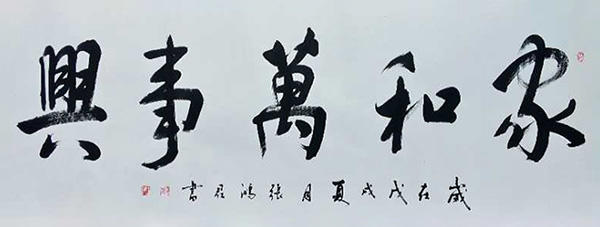 家和萬事興
歲在戊戌夏月張鴻君書